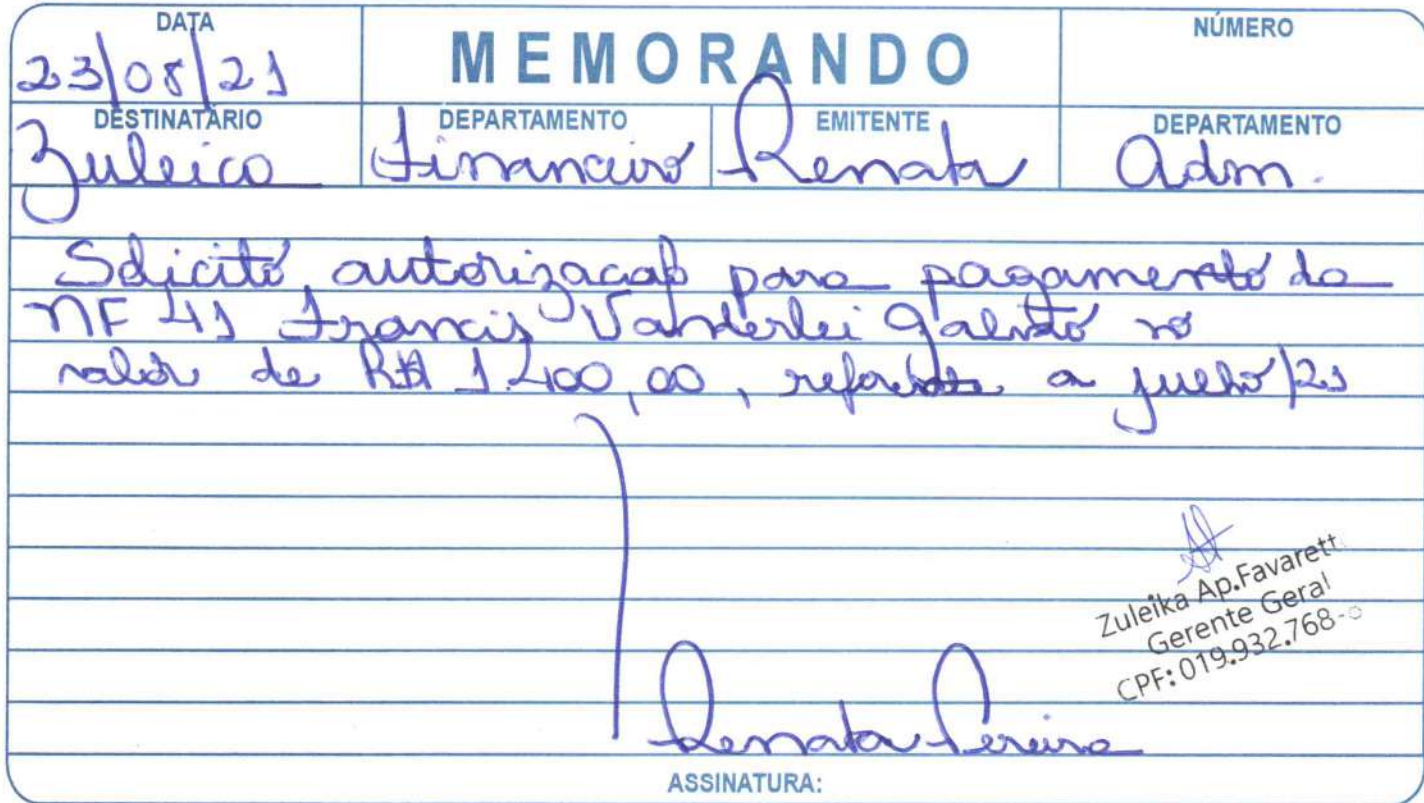 DATA
23/08/21
MEMORANDO
NÚMERO
DESTINATÁRIO
Zuleica
DEPARTAMENTO
Financeiro
EMITENTE
Renata
DEPARTAMENTO
Adm.
Solicito autorizacao para pagamento da
NF 41 Francis Vanderlei Galvão no
valor de R$ 1.400,00, referente a julho/21
Zuleika Ap.Favarett
Gerente Geral
CPF: 019.932.768-
Renata Pereira
ASSINATURA: